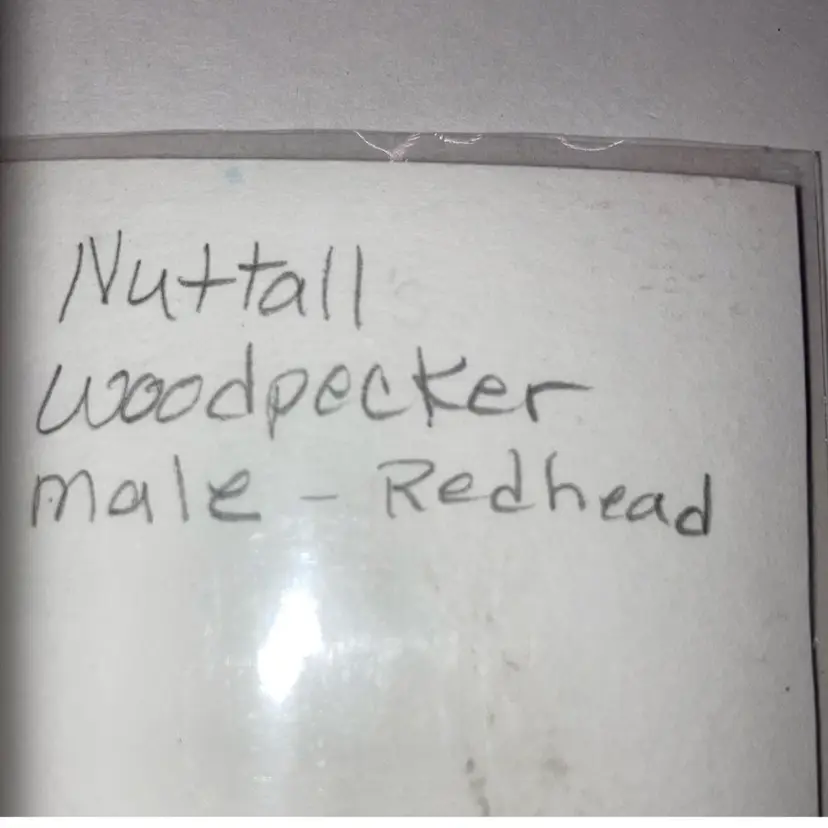 Nuttall's
Woodpecker
male - Redhead